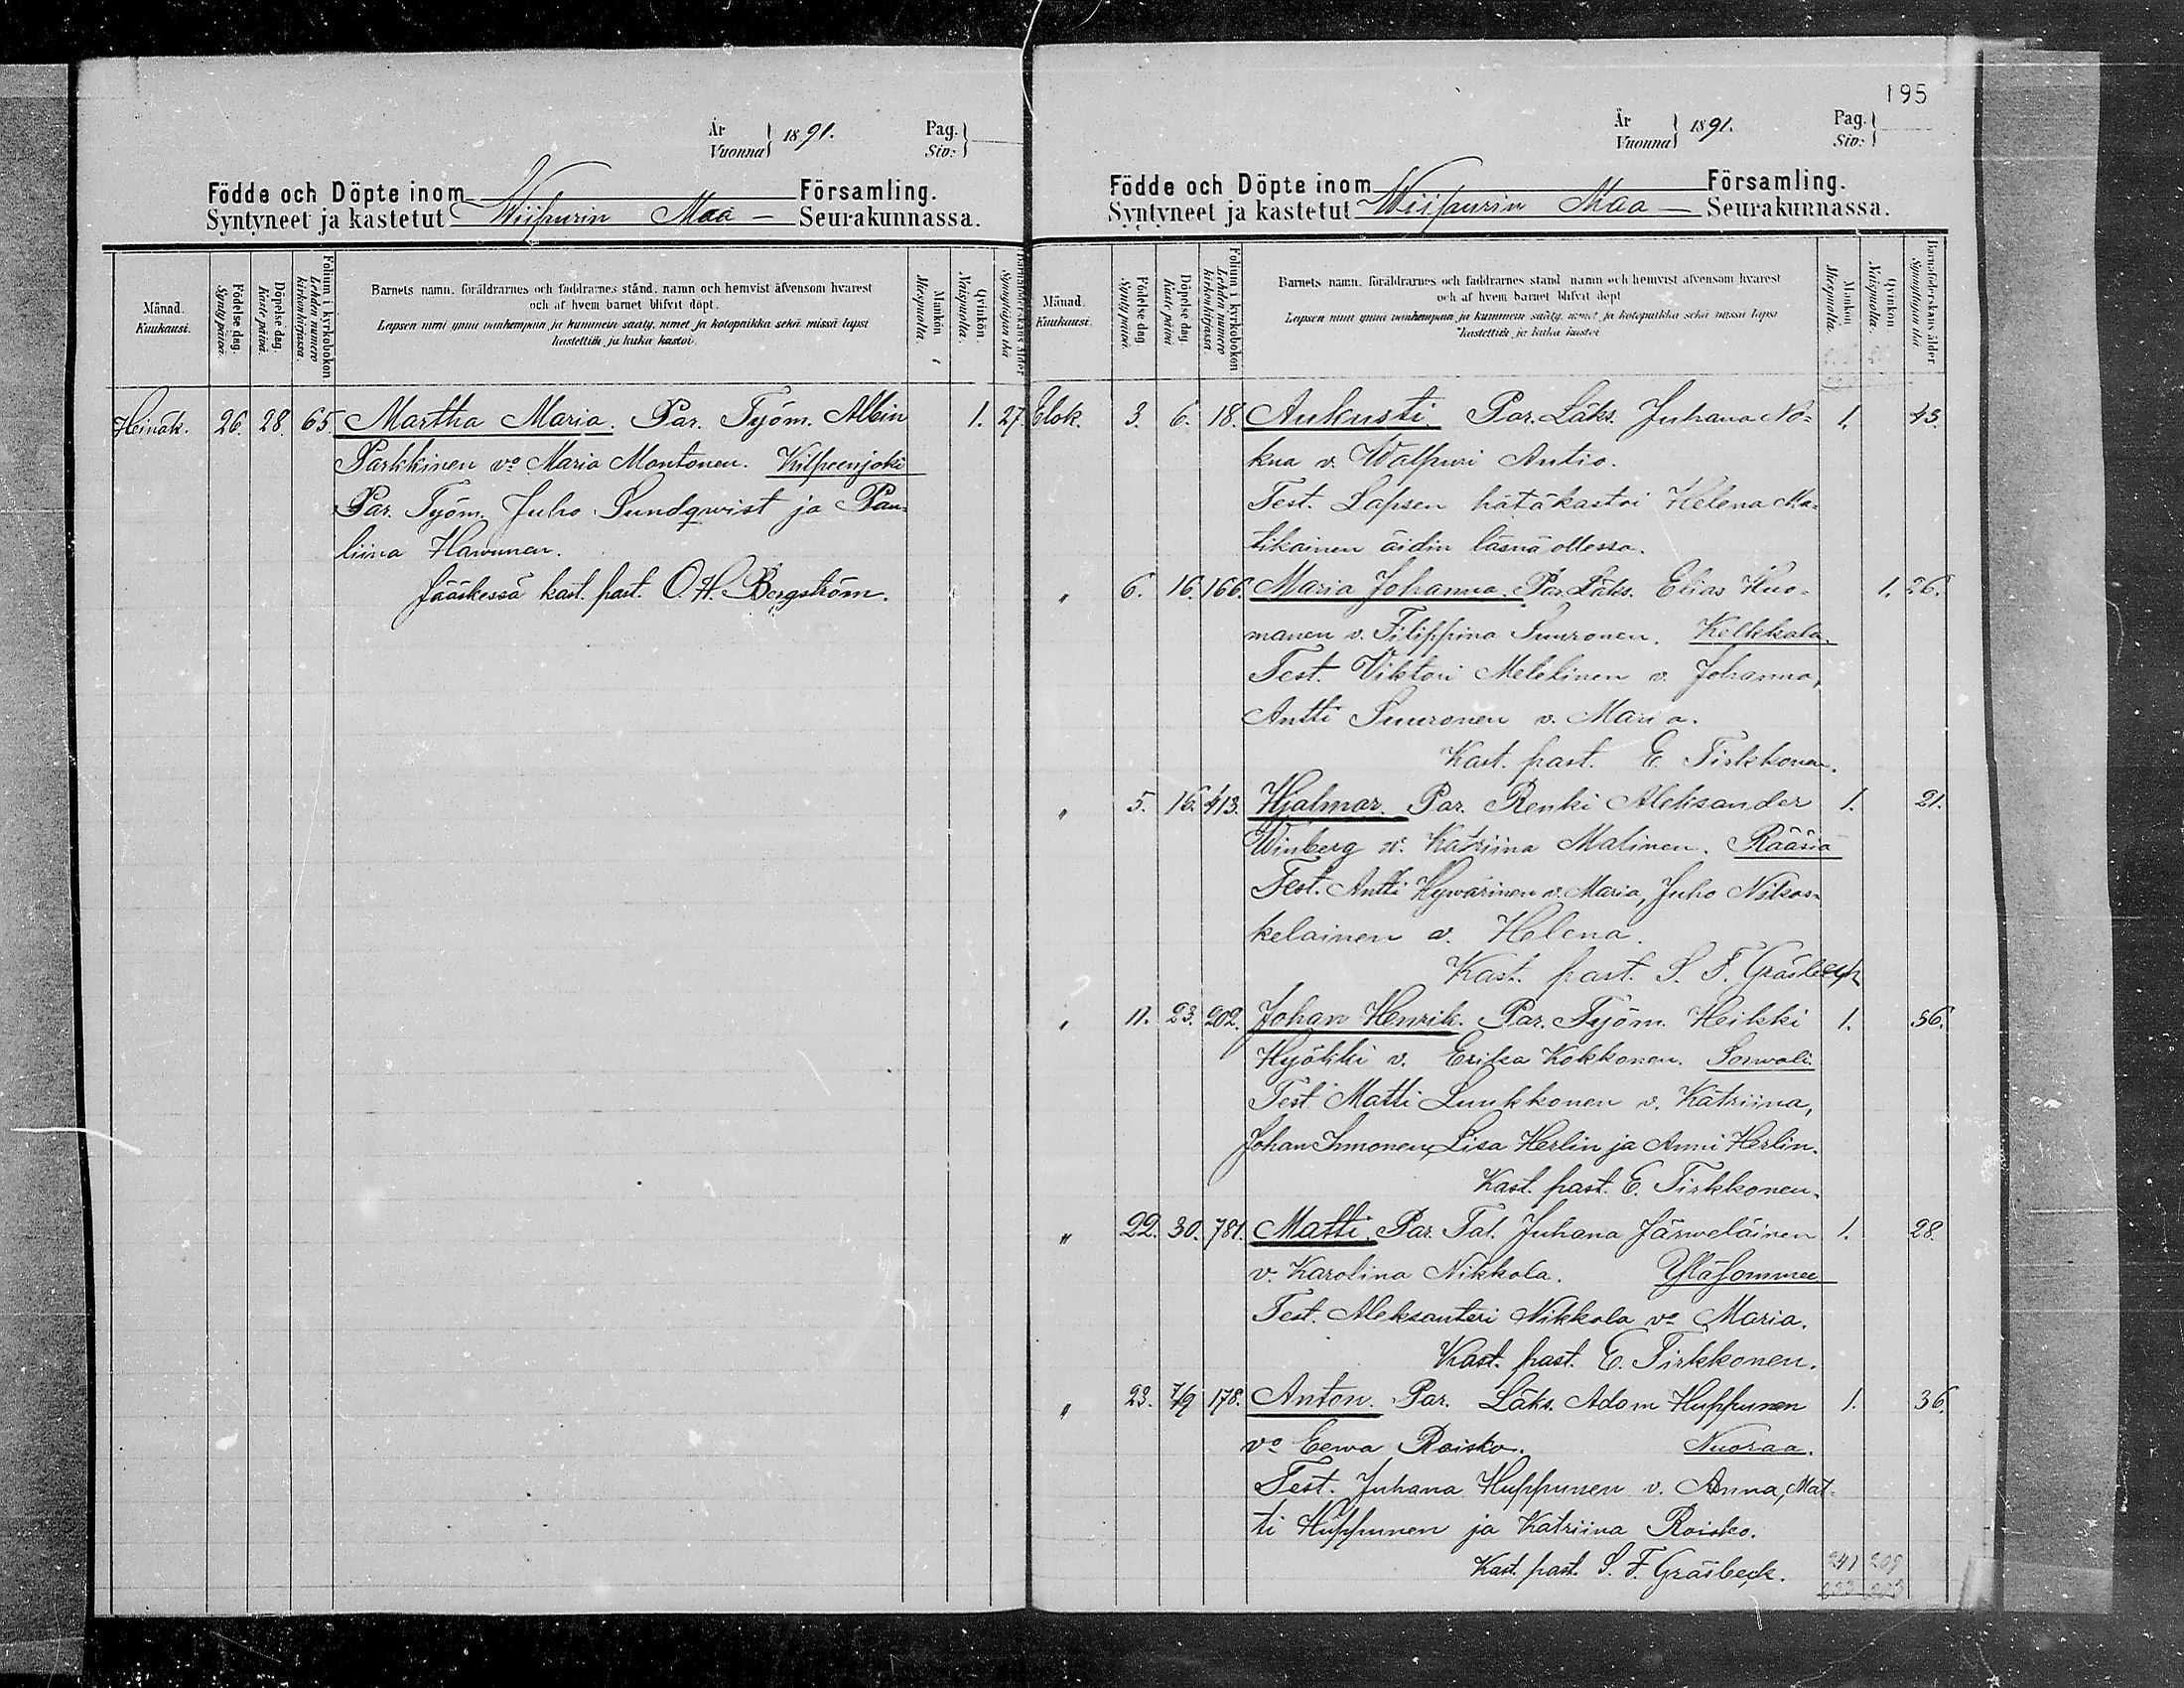 År
Vuonna } 1891.
Pag.
Siv. }
Födde och Döpte inom Församling.
Syntyneet ja kastetut Wiipurin Maa – Seurakunnassa.
Månad.
Kuukausi.
Födelse dag.
Synty päivä.
Döpelse dag.
Kaste päivä.
Folium i kyrkoboken.
Lehden numero kirkonkirjassa.
Barnets namn, föräldrarnes och faddrarnes stånd, namn och hemvist äfvensom hvarest
och af hvem barnet blifvit döpt.
Lapsen nimi ynnä vanhempain ja kummein sääty, nimet ja kotopaikka sekä missä lapsi
kastettiin ja kuka kastoi.
Mankön
Miespuolia.
Qvinkön
Naispuolia.
Barnaföderskans ålder
Synnyttäjän ikä
Heinäk. 26. 28. 65 Martha Maria. Par. Työm. Albin 1. 27.
Parkkinen vo Maria Montonen. Kilpeenjoki
Par. Työm. Juho Sundqvist ja Pau-
liina Hawunen.
Jääskessä kast. past. O. H. Bergström.
195
År
Vuonna } 1891.
Pag.
Siv. }
Födde och Döpte inom Församling.
Syntyneet ja kastetut Wiipurin Maa – Seurakunnassa.
Månad.
Kuukausi.
Födelse dag.
Synty päivä.
Döpelse dag
Kaste päivä
Folium i kyrkoboken
Lehden numero kirkonkirjassa.
Barnets namn, föräldrarnes och faddrarnes stånd namn och hemvist äfvensom hvarest
och af hvem barnet blifvit döpt
Lapsen nimi ynnä vanhempain ja kummein sääty, nimet ja kotopaikka sekä missä lapsi
kastettiin ja kuka kastoi
Mankön
Miespuolia.
Qvinkön
Naispuolia.
Barnaföderskans ålder
Synnyttäjän ikä
Elok. 3. 6. 18. Aukusti. Par. Läks. Juhana No- 1. 43.
kua v. Walpuri Antio.
Test. Lapsen hätäkastoi Helena Ma-
tikainen äidin läsnä ollessa.
" 6. 16. 166. Maria Johanna. Par. Läks. Elias Huo- 1. 26.
manen v. Filippina Suuronen. Kelkkala.
Test. Viktori Melelinen v. Johanna,
Antti Suuronen v. Maria.
Kast. past. E. Tirkkonen.
" 5. 16. 413. Hjalmar. Par. Renki Aleksander 1. 21.
Winberg v. Katriina Malinen. Rääsiä
Test. Antti Hywärinen v. Maria, Juho Nikos-
kelainen v. Helena.
Kast. past. S. F. Gräsbeck
" 11. 23. 202. Johan Henrik. Par. Työm. Heikki 1. 36.
Hyökki v. Erika Kokkonen. Sorwali.
Test Matti Luukkonen v. Katriina,
Johan Immonen, Lisa Herlin ja Anni Herlin.
Kast. past. E. Tirkkonen.
" 22. 30. 781. Matti. Par. Tal. Juhana Järweläinen 1. 28.
v. Karolina Nikkola. Yläsommee
Test. Aleksanteri Nikkola vo Maria.
Kast. past. E. Tirkkonen.
" 23. 7/9 178. Anton. Par. Läks. Adam Huppunen 1. 36.
vo Eewa Roisko. Nuoraa.
Test. Juhana Huppunen v. Anna, Mat-
ti Huppunen ja Katriina Roisko.
Kast. past. S. F. Gräsbeck.
241 209